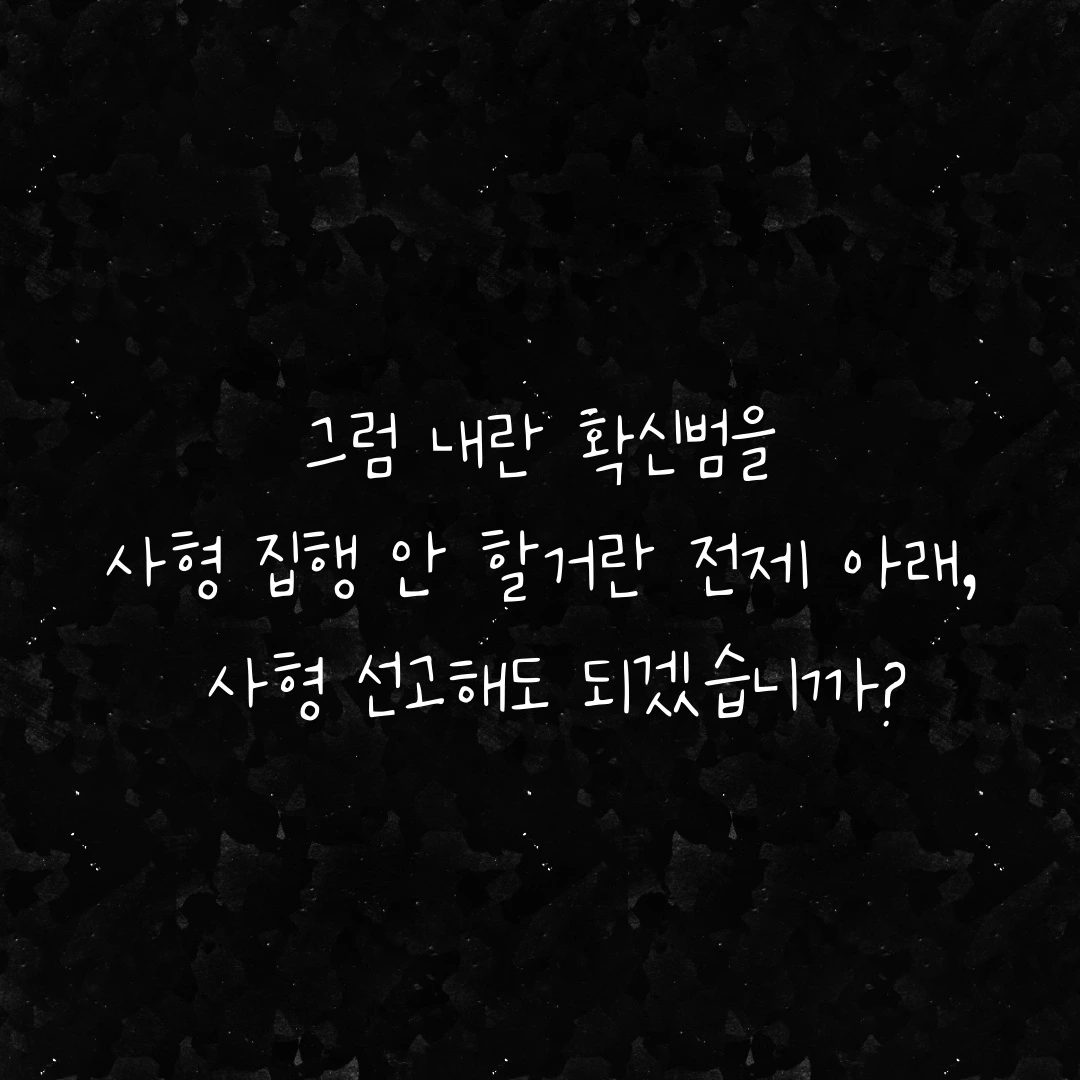 그럼 내란 확신범을
사형 집행 안 할거란 전제 아래,
사형 선고해도 되겠습니까?